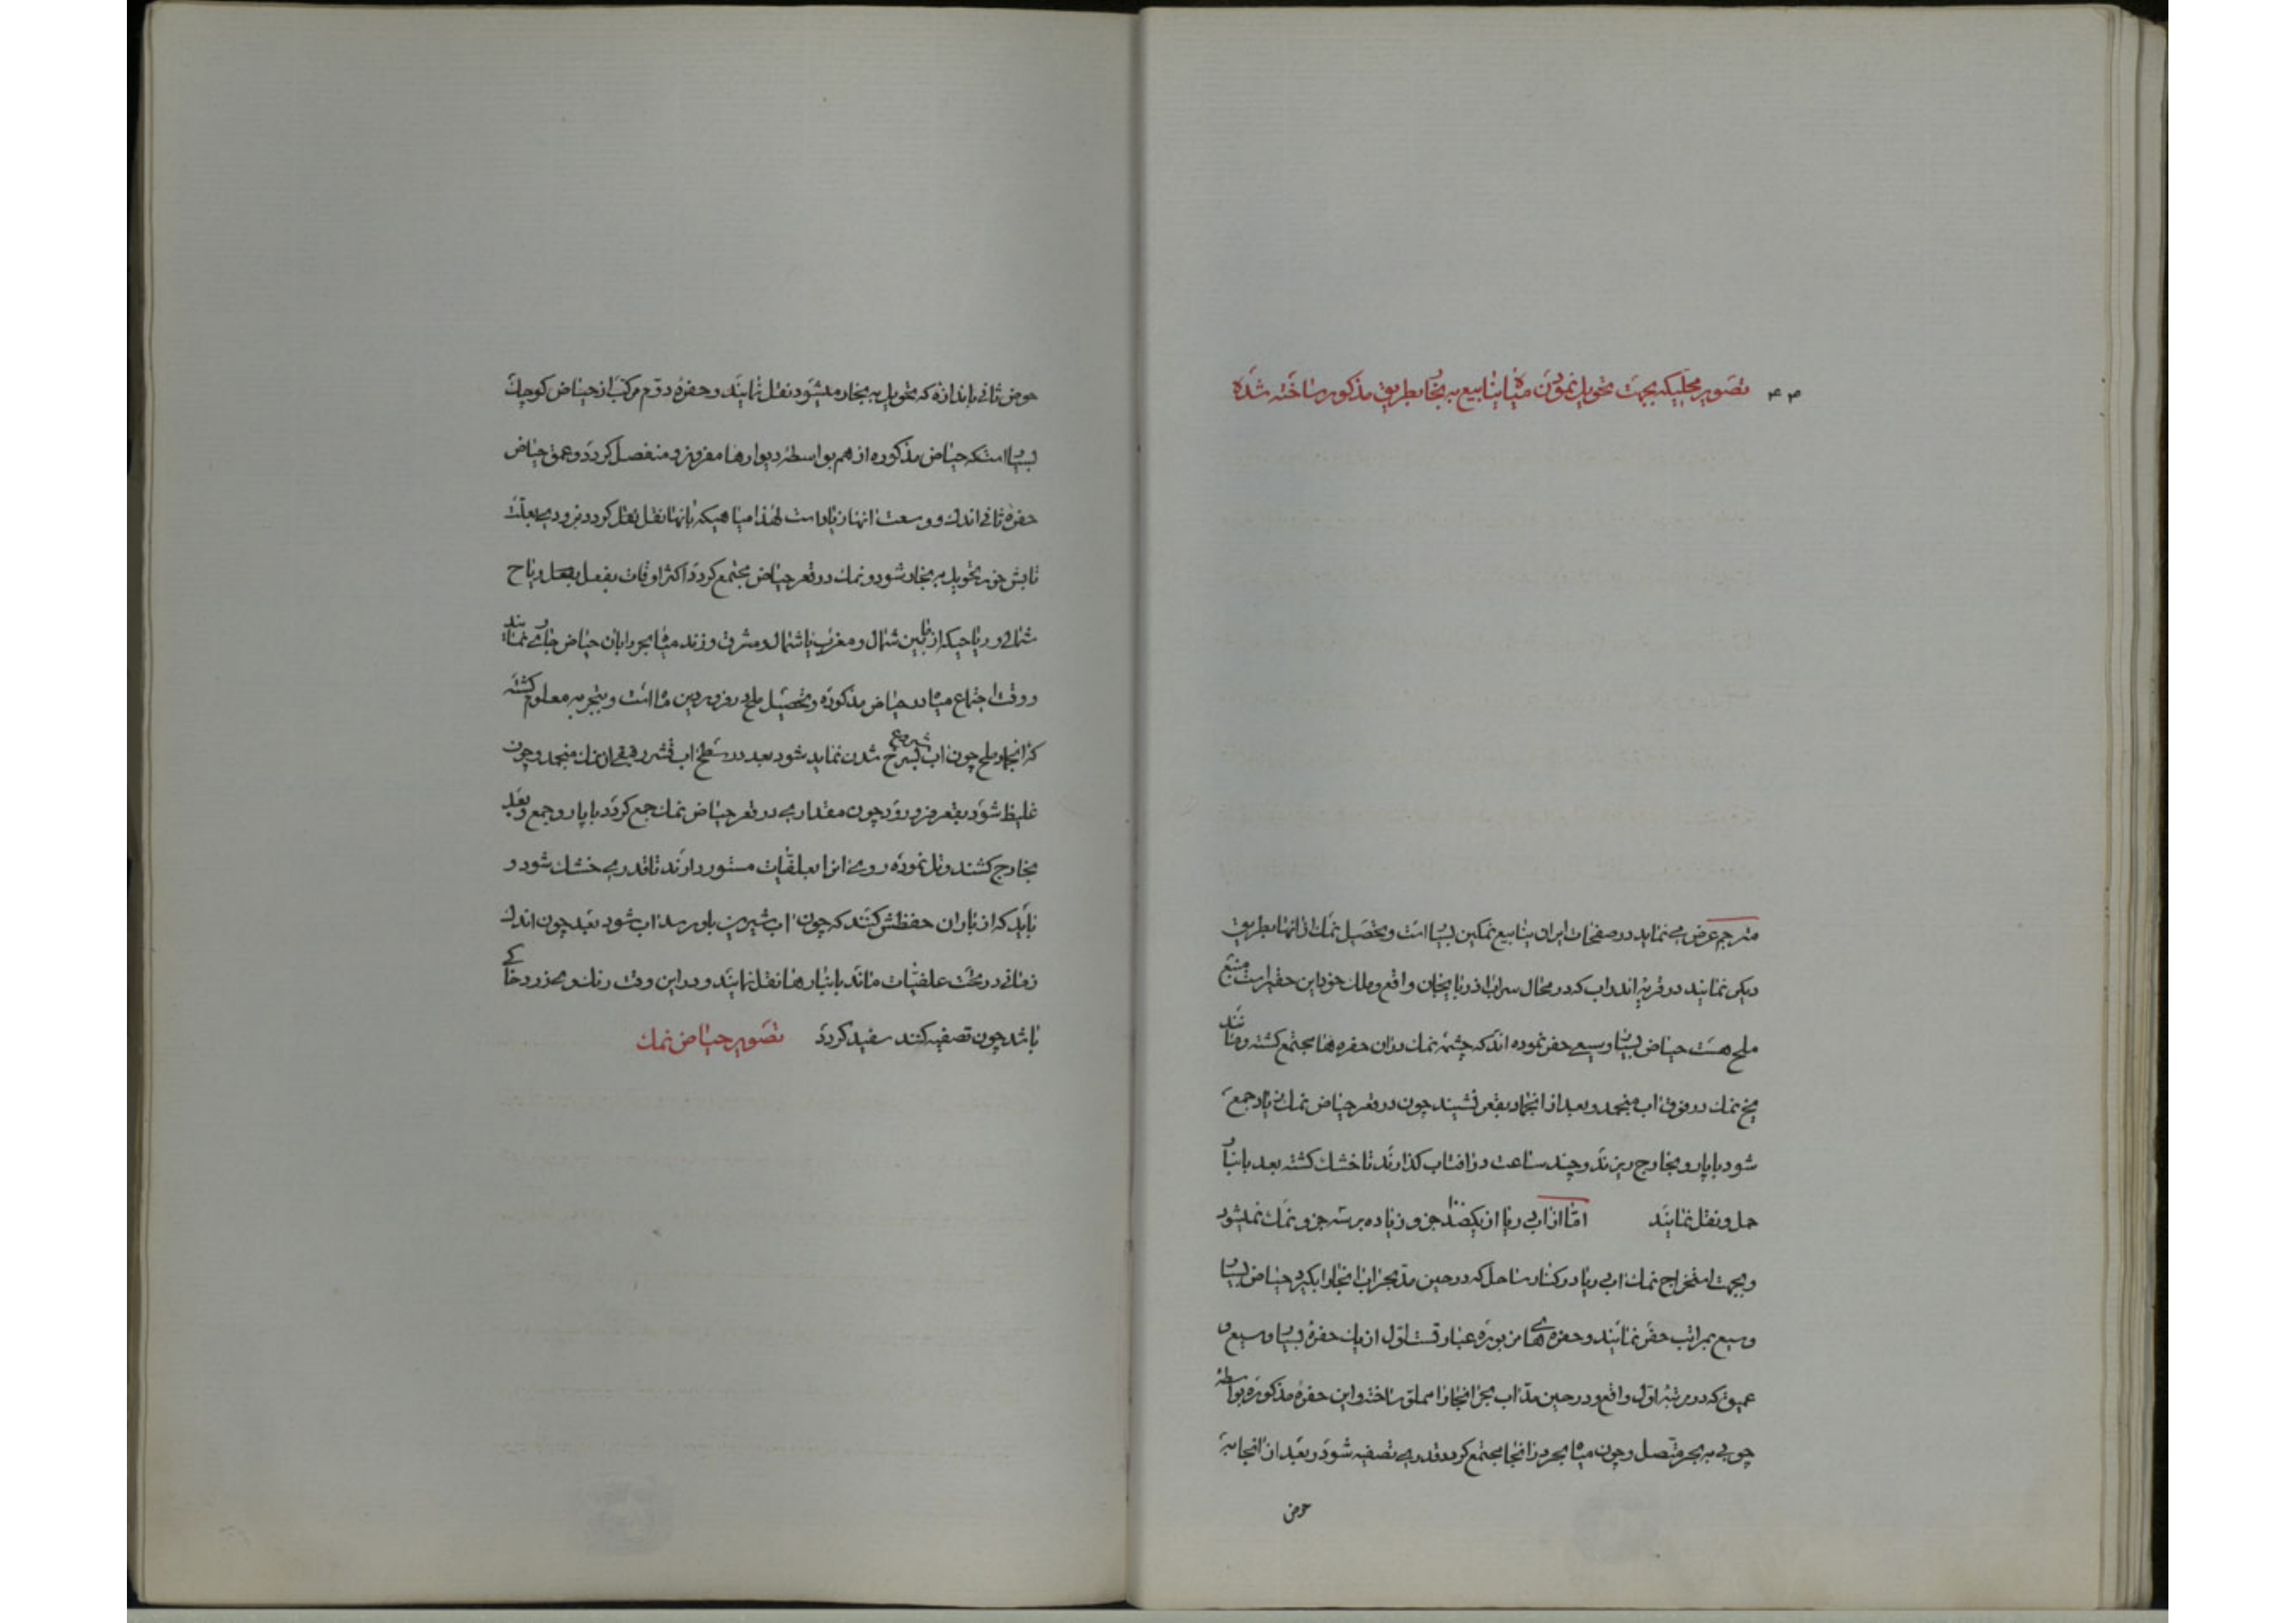 ۴۴ تصویر محلیکه بجهت تحویل نمودن میاه ینابیع به بخار بطریق مذکور ساخته شده
مترجم عرض می نماید در صفحات ایران ینابیع نمکین بسیار است و تحصیل نمک از انها بطریق
دیکر نمایند در قریه انداب که در محال سراب اذربایجان واقع و ملک خود این حقیر است منبع
ملح هست حیاض بسیار وسیع حفر نموده اند که چشمه نمک در ان حفره ها مجتمع کشته و مانند
یخ نمک در فوق اب منجمد و بعد از انجماد بقعر نشیند چون در قعر حیاض نمک زیاد جمع
شود با پارو بخارج ریزند و چند ساعت در افتاب کذارند تا خشک کشته بعد بانبار
حمل و نقل نمایند اما از اب دریا از یکصد جزو زیاده بر سه جزو نمک نمیشود
و بجهت استخراج نمک اب دریا در کنار ساحل که در حین مد بحر اب انجا را بکیرد حیاض بسیار
وسیع بمراتب حفر نمایند و حفره های مزبوره عبارتست اول از یک حفره بسیار وسیع و
عمیق که در مرتبه اول واقع و در حین مد اب بحر انجا را مملو ساخته و این حفره مذکوره بواسطه
چوبی به بحر متصل و چون میاه بحر در انجا مجتمع کردد قدری تصفیه شود و بعد از انجا به
حوض
حوض ثانی باندازه که تحویل به بخار میشود نقل نمایند و حفره دوم مرکب از حیاض کوچک
بسیار استکه حیاض مذکوره از هم بواسطه دیوارها مفروز و منفصل کردد و عمق حیاض
حفره ثانی اندک و وسعت انها زیاد است لهذا میاهیکه بانها نقل کردد بزودی بعلت
تابش خور تحویل به بخار شود و نمک در قعر حیاض مجتمع کردد اکثر اوقات بفعل ریاح
شمالی و ریاحیکه از بین شمال و مغرب یا شمال و مشرق وزند میاه بحر را بان حیاض جاری نمایند
و وقت اجتماع میاه در حیاض مذکوره و تحصیل ملح در فروردین ماه است و بتجربه معلوم کشته
که انجماد ملح چون اب بسرخ شدن شروع نماید شود بعد در سطح اب قشر رقیقی از نمک منجمد و چون
غلیظ شود بقعر فرو رود چون مقداری در قعر حیاض نمک جمع کردد با پارو جمع و بعد
بخارج کشند و تل نموده روی انرا بعلفیات مستور دارند تا قدری خشک شود و
باید که از باران حفظش کنند که چون اب شیرین باو رسد اب شود بعد چون اندک
زمانی در تحت علفیات ماند بانبارها نقل نمایند و در این وقت رنک وی زرد خاکی
باشد چون تصفیه کنند سفید کردد تصویر حیاض نمک